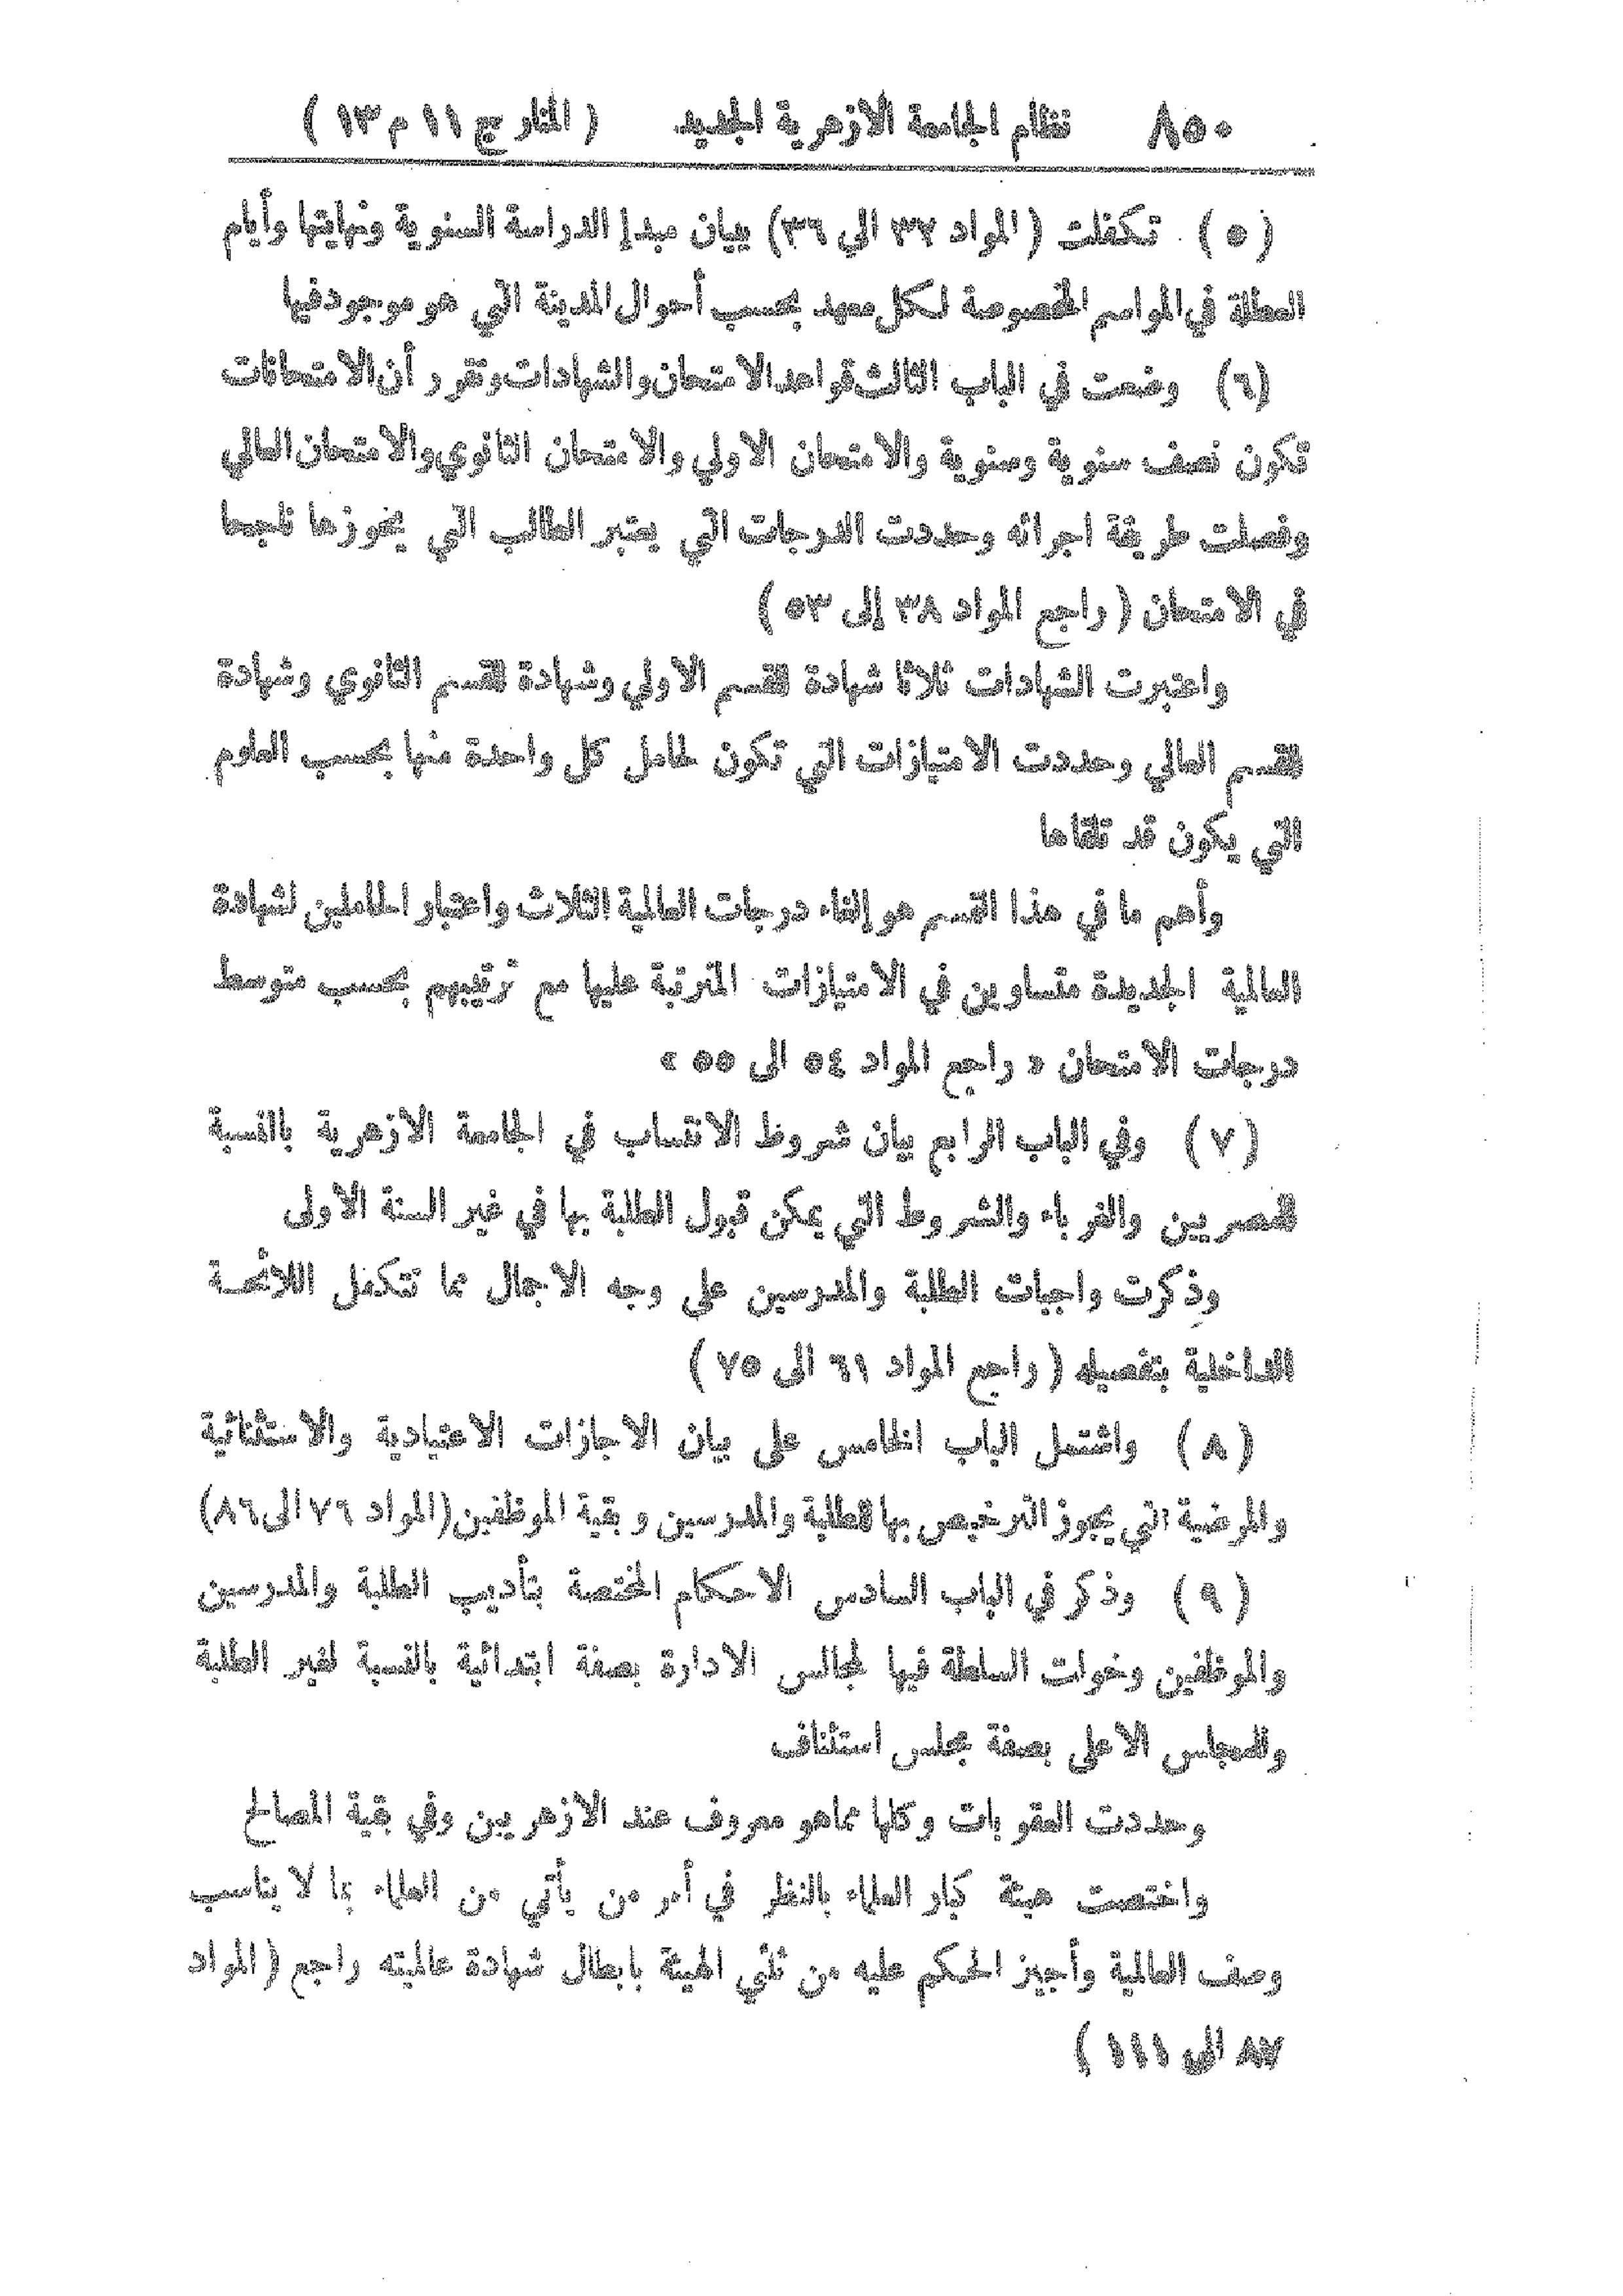 ٨٥٠ نظام الجامعة الازهرية الجديد ( المنار ج ١١ م ١٣ )
( ٥ ) تكفلت ( المواد ٣٢ الى ٣٦ ) ببيان مبدإ الدراسة السنوية ونهايتها وأيام
العطلة في المواسم المخصوصة لكل معهد بحسب أحوال المدينة التي هو موجود فيها
( ٦ ) وضعت في الباب الثالث قواعد الامتحان والشهادات وتقرر أن الامتحانات
تكون نصف سنوية وسنوية والامتحان الاولي والامتحان الثانوي والامتحان العالي
وفصلت طريقة اجرائه وحددت الدرجات التي يعتبر الطالب التي يحوزها ناجحا
في الامتحان ( راجع المواد ٣٨ إلى ٥٣ )
واعتبرت الشهادات ثلاثا شهادة للقسم الاولي وشهادة للقسم الثانوي وشهادة
للقسم العالي وحددت الامتيازات التي تكون لحامل كل واحدة منها بحسب العلوم
التي يكون قد تلقاها
وأهم ما في هذا القسم هو إلغاء درجات العالمية الثلاث واعتبار الحاملين لشهادة
العالمية الجديدة متساوين في الامتيازات المترتبة عليها مع ترتيبهم بحسب متوسط
درجات الامتحان « راجع المواد ٥٤ الى ٥٥ »
( ٧ ) وفي الباب الرابع بيان شروط الانتساب في الجامعة الازهرية بالنسبة
للمصريين والغرباء والشروط التي يمكن قبول الطلبة بها في غير السنة الاولى
وذكرت واجبات الطلبة والمدرسين على وجه الاجمال مما تتكفل اللائحة
الداخلية بتفصيله ( راجع المواد ٦١ الى ٧٥ )
( ٨ ) واشتمل الباب الخامس على بيان الاجازات الاعتيادية والاستثنائية
والمرضية التي يجوز الترخيص بها للطلبة والمدرسين وبقية الموظفين ( المواد ٧٦ الى ٨٦ )
( ٩ ) وذكر في الباب السادس الاحكام المختصة بتأديب الطلبة والمدرسين
والموظفين وخولت السلطة فيها لمجالس الادارة بصفة ابتدائية بالنسبة لغير الطلبة
وللمجلس الاعلى بصفة مجلس استئناف
وحددت العقوبات وكلها مما هو معروف عند الازهريين وفي بقية المصالح
واختصت هيئة كبار العلماء بالنظر في أمر من يأتي من العلماء بما لا يناسب
وصف العالمية وأجيز الحكم عليه من ثلثي الهيئة بابطال شهادة عالميته راجع ( المواد
٨٧ الى ١١١ )